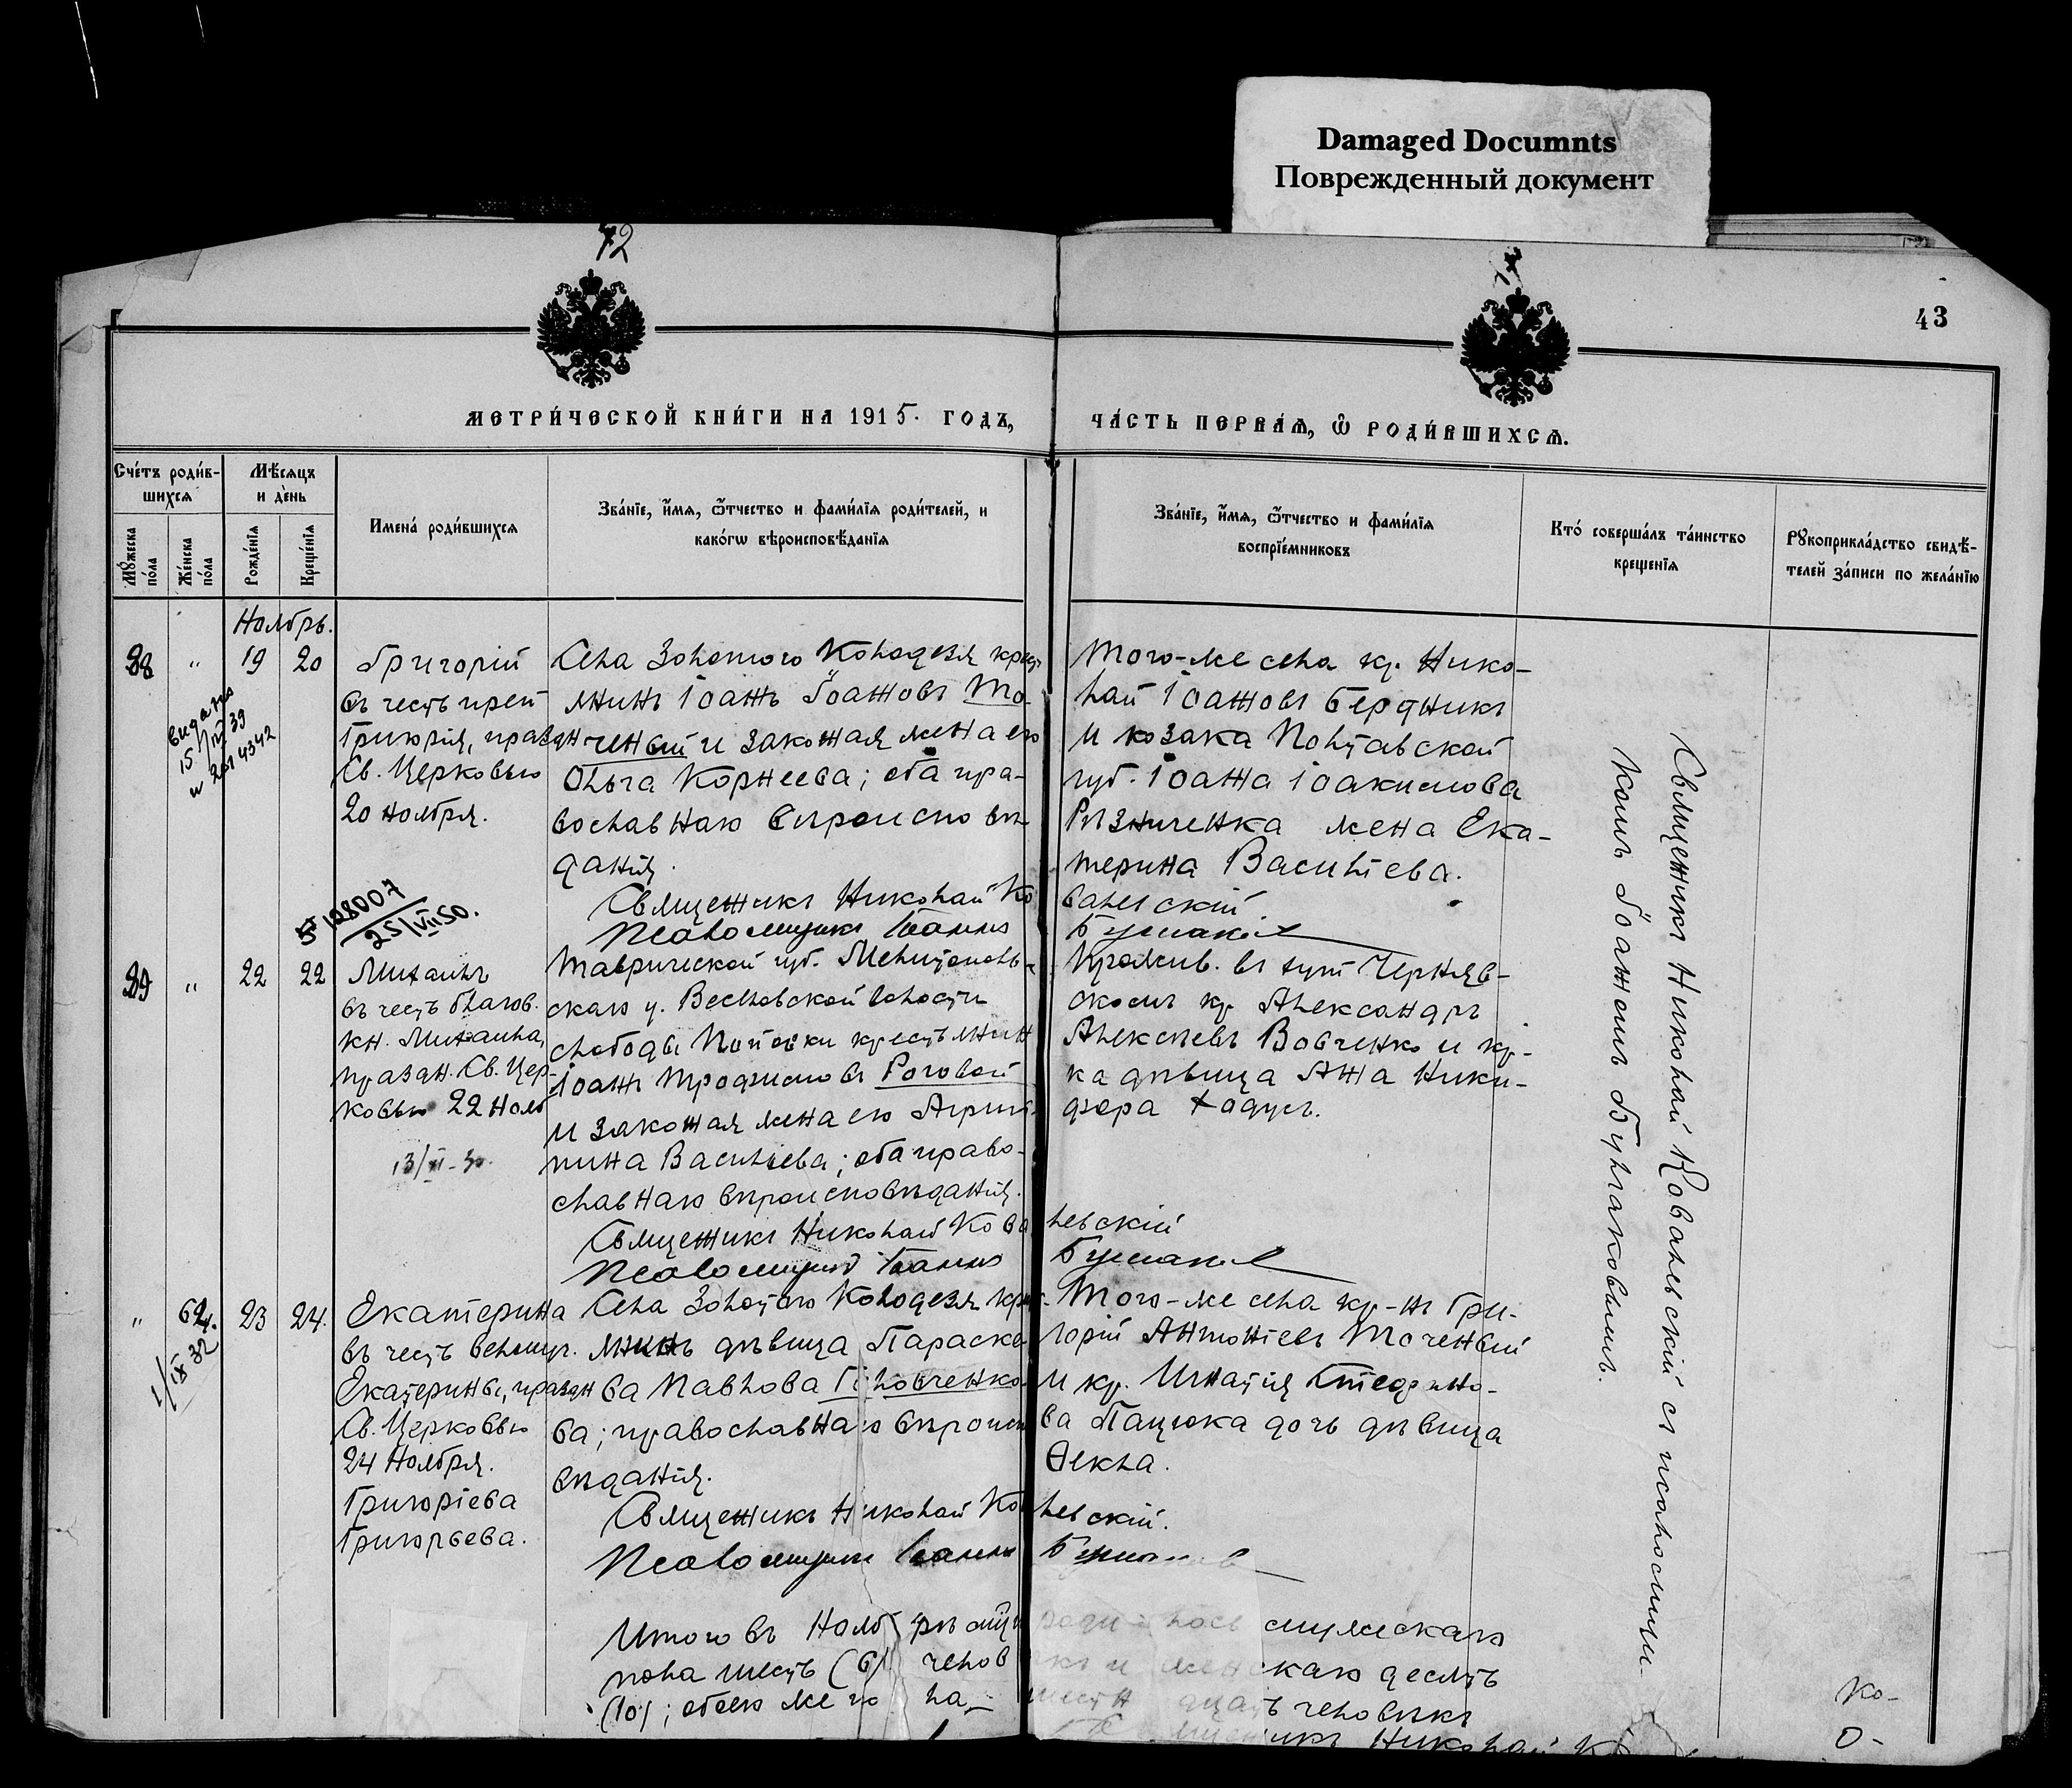 Damaged Documnts
Поврежденный документ
42
43
МЕТРИ́ЧЕСКОЙ КНИ́ГИ НА 1915. ГОДЪ,
ЧА́СТЬ ПЕРВА́Я, Ѿ РОДИ́ВШИХСѦ.
Сче́тъ роди́в-
шихся
Мѣ́сяцъ
и де́нь
Мꙋ́жеска по́ла
Же́нска по́ла
Рожде́нїя
Креще́нїя
Имена̀ роди́вшихся
Зва́нїе, и҆́мя, ѻ҆́тчество и фами́лїя роди́телей, и
како́гѡ вѣроисповѣ́данїя
Зва́нїе, и҆́мя, ѻ҆́тчество и фами́лїя
воспрїе́мниковъ
Кто́ соверша́лъ та́инство
крещенїя
Рꙋкоприкла́дство свидѣ́-
телей за́писи по жела́нїю
Ноябрь.
38 " 19 20
Григорій
въ честь преп
Григорія, празд
Св. Церковью
20 ноября.
видано
15/IV 39
№ 4342
Села Золотого Колодезя крес
янинъ Іоаннъ Іоанновъ То-
ченый и законная жена его
Ольга Корнеева; оба пра-
вославнаго вѣроисповѣ
данія.
Священникъ Николай Ко
Псаломщикъ Іоаннъ
Того-же села кр. Нико-
лай Іоанновъ Бердникъ
и козака Полтавской
губ. Іоанна Іоакимова
Рѣзниченка жена Ека-
терина Васильева.
валевскій.
Булгаков
108007
25/VII 50.
39 " 22 22
Михаилъ
въ честь благов.
кн. Михаила,
празд. Св. Цер-
ковью 22 Нояб
13/VI-30.
Таврической губ. Мелитополь-
скаго у. Веселовской волости
слободы Поповки крестьянин
Іоаннъ Трофимовъ Роговой
и законная жена его Агрип-
пина Васильева; оба право-
славнаго вѣроисповѣданія.
Священникъ Николай Кова
Псаломщикъ Іоаннъ
Прожив. въ хут Черняв-
скомъ кр. Александръ
Алексѣевъ Вовченко и кр-
ка дѣвица Анна Ники-
фора Хадусъ.
левскій
Булгаков
" 62. 23 24.
1/IX 32
Екатерина
въ честь великомуч.
Екатерины, празд
Св. Церковью
24 Ноября.
Григоріева
Григорьева.
Села Золотого Колодезя крес-
янинъ дѣвица Параске
ва Павлова Головченко
ва; православнаго вѣроис
вѣданія.
Священникъ Николай Ко
Псаломщикъ Іоаннъ
Того-же села кр-нъ Гри-
горій Антоніевъ Точеный
и кр. Игнатія
ва Пацюка дочь дѣвица
Ѳекла.
левскій.
Священникъ Николай Ковалевскій съ псаломщи-
комъ Іоанномъ Булгаковымъ.
Итого въ Ноябрѣ мѣс родилось мужскаго
пола шесть (6) челов и женскаго десять
(10); обоего же по ла шестнадцать человѣкъ
Священникъ Николай К
Ко-
О-